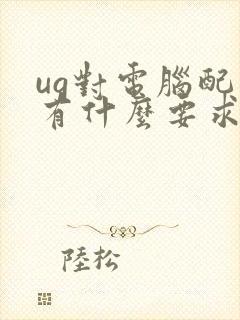 ug對電腦配
有什麼要求
陸松